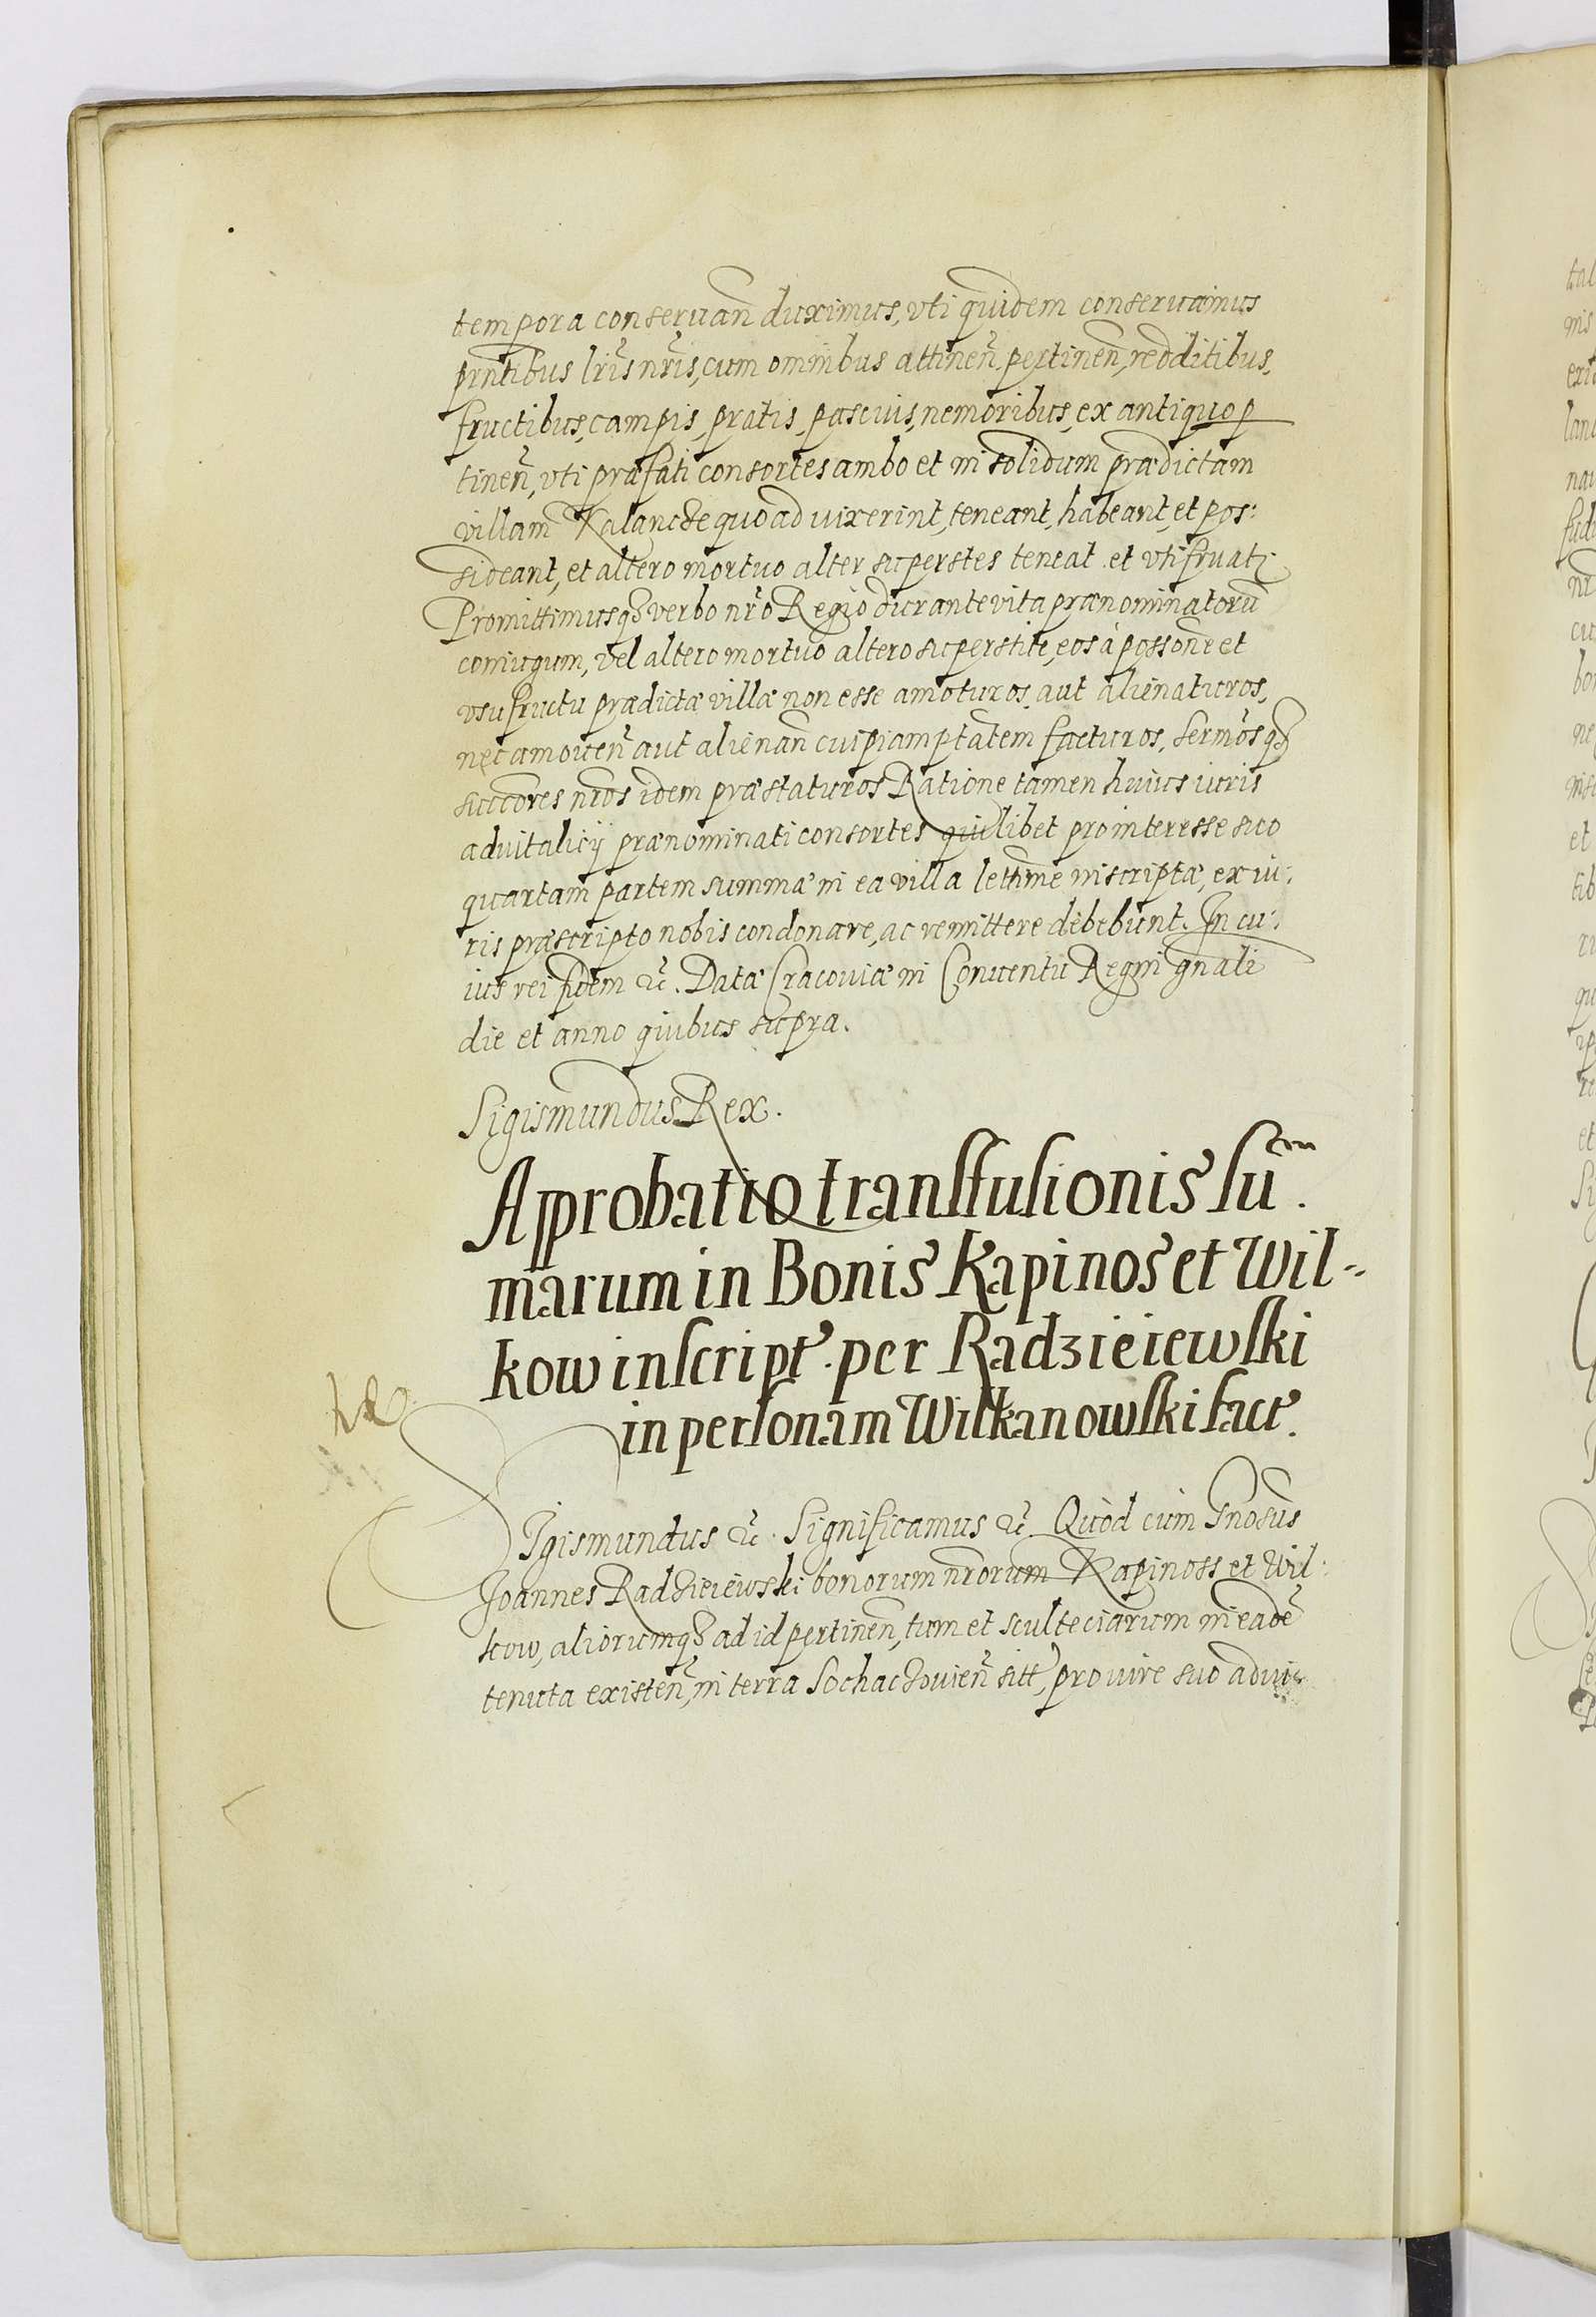 tempora conseruan̄ duximus, vti quidem conseruamus
prn̄tibus lr̄is nr̄is, cum omnibus attinen̄ pertinen̄, redditibus,
fructibus, campis, pratis, pascuis, nemoribus, ex antiquo p
tinen̄, vti præfati consortes ambo et in solidum prædictam
villam Kalancze quoad vixerint, teneant, habeant, et pos:
sideant, et altero mortuo alter superstes teneat et vtifruatr
Promittimusqȝ verbo nr̄o Regio durante vita prænominatorū
coniugum, vel altero mortuo altero superstite, eos à possōne et
vsufructu prædictæ villæ non esse amoturos, aut alienaturos,
nec amouen̄ aut alienan̄ cuipiam ptātem facturos, Sermōsqȝ
succōres nr̄os idem præstaturos Ratione tamen huius iuris
aduitalicij prænominati consortes quilibet pro interesse suo
quartam partem summæ in ea villa lettime inscriptæ, ex iu:
ris præscripto nobis condonare, ac remittere debebunt. In cu:
ius rei fidem &c̄. Datæ Cracouiæ in Conuentu Regni gn̄ali
die et anno quibus supra.
Sigismundus Rex.
Approbatio transfusionis sum̄
marum in Bonis Kapinos et Wil-
kow inscript. per Radzieiewski
in personam Wilkanowski fact.
SIgismundus &c̄. Significamus &c̄ Quòd cùm Gn̄osus
Joannes Radzieiewski bonorum nr̄orum Kapinoss et Wil:
kow, aliorumqȝ ad id pertinen̄, tum et sculteciarum in eadē
tenuta existen̄, in terra Sochaczouien̄ sitt, pro iure suo adui: